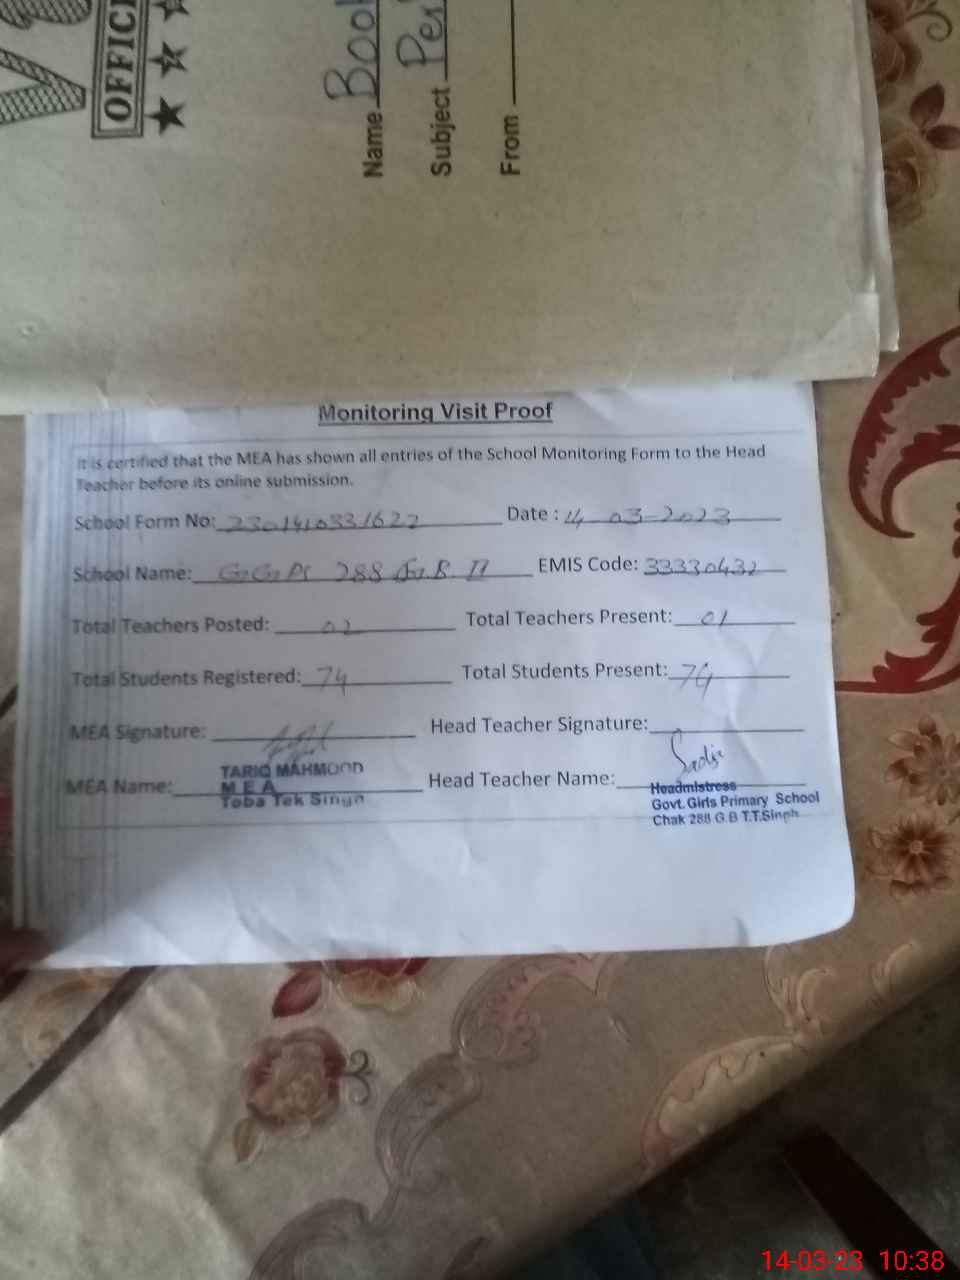 OFFICE
Name Book
Subject Per
From
Monitoring Visit Proof
It is certified that the MEA has shown all entries of the School Monitoring Form to the Head
Teacher before its online submission.
School Form No: 2301410331622 Date : 14-03-2023
School Name: GGPS 288 G.B. II EMIS Code: 33330432
Total Teachers Posted: 02 Total Teachers Present: 01
Total Students Registered: 74 Total Students Present: 74
MEA Signature: Head Teacher Signature:
Sadia
MEA Name: TARIQ MAHMOOD Head Teacher Name:
M E A
Toba Tek Singh
Headmistress
Govt. Girls Primary School
Chak 288 G B T.T.Singh
14-03-23 10:38